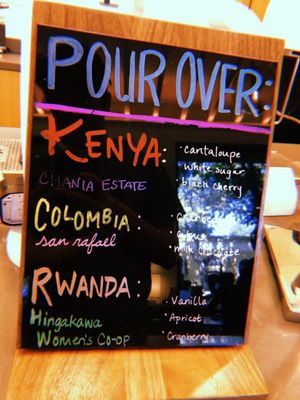 POUR OVER:
KENYA:
CHANIA ESTATE
· cantaloupe
white sugar
· black cherry
COLOMBIA:
san rafael
· cranberry
· citrus
· milk chocolate
RWANDA:
Hingakawa
Women's Co-op
· Vanilla
· Apricot
· Cranberry